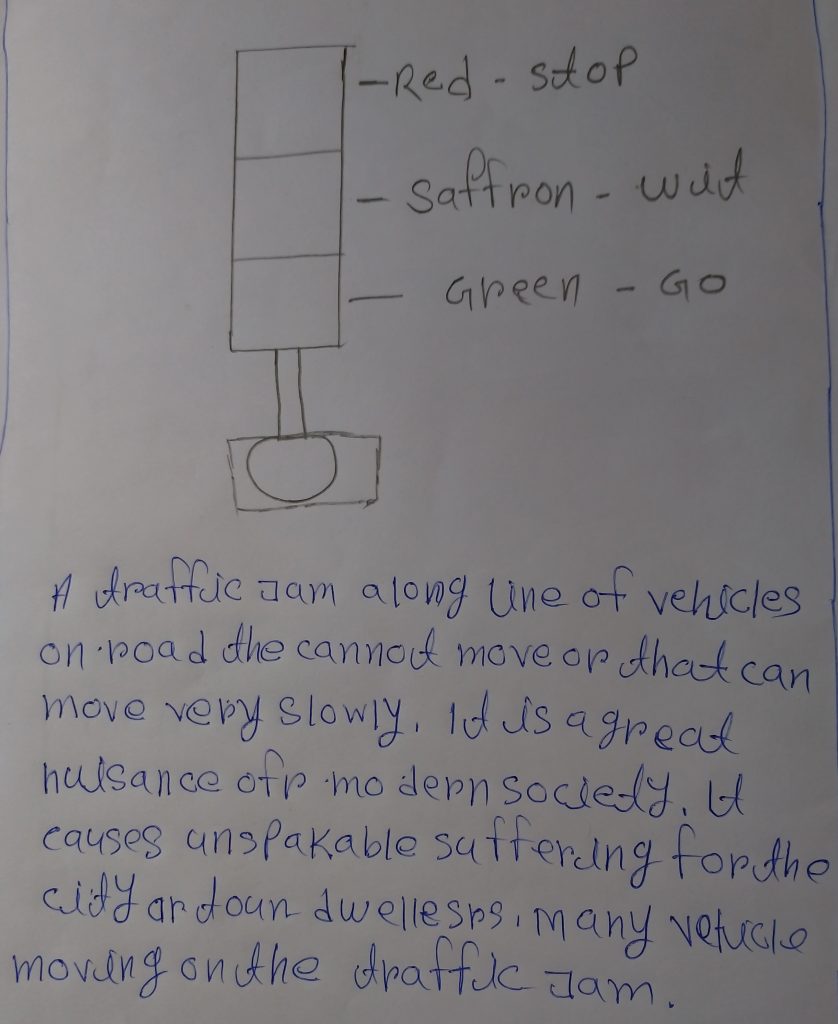 - Red - stop
- Saffron - wait
- Green - Go
A traffic Jam along line of vehicles
on road the cannot move or that can
move very slowly. It is a great
nuisance ofr modern society. It
causes unspakable suffering for the
city or toun dwellesrs. many vehicle
moving on the traffic Jam.